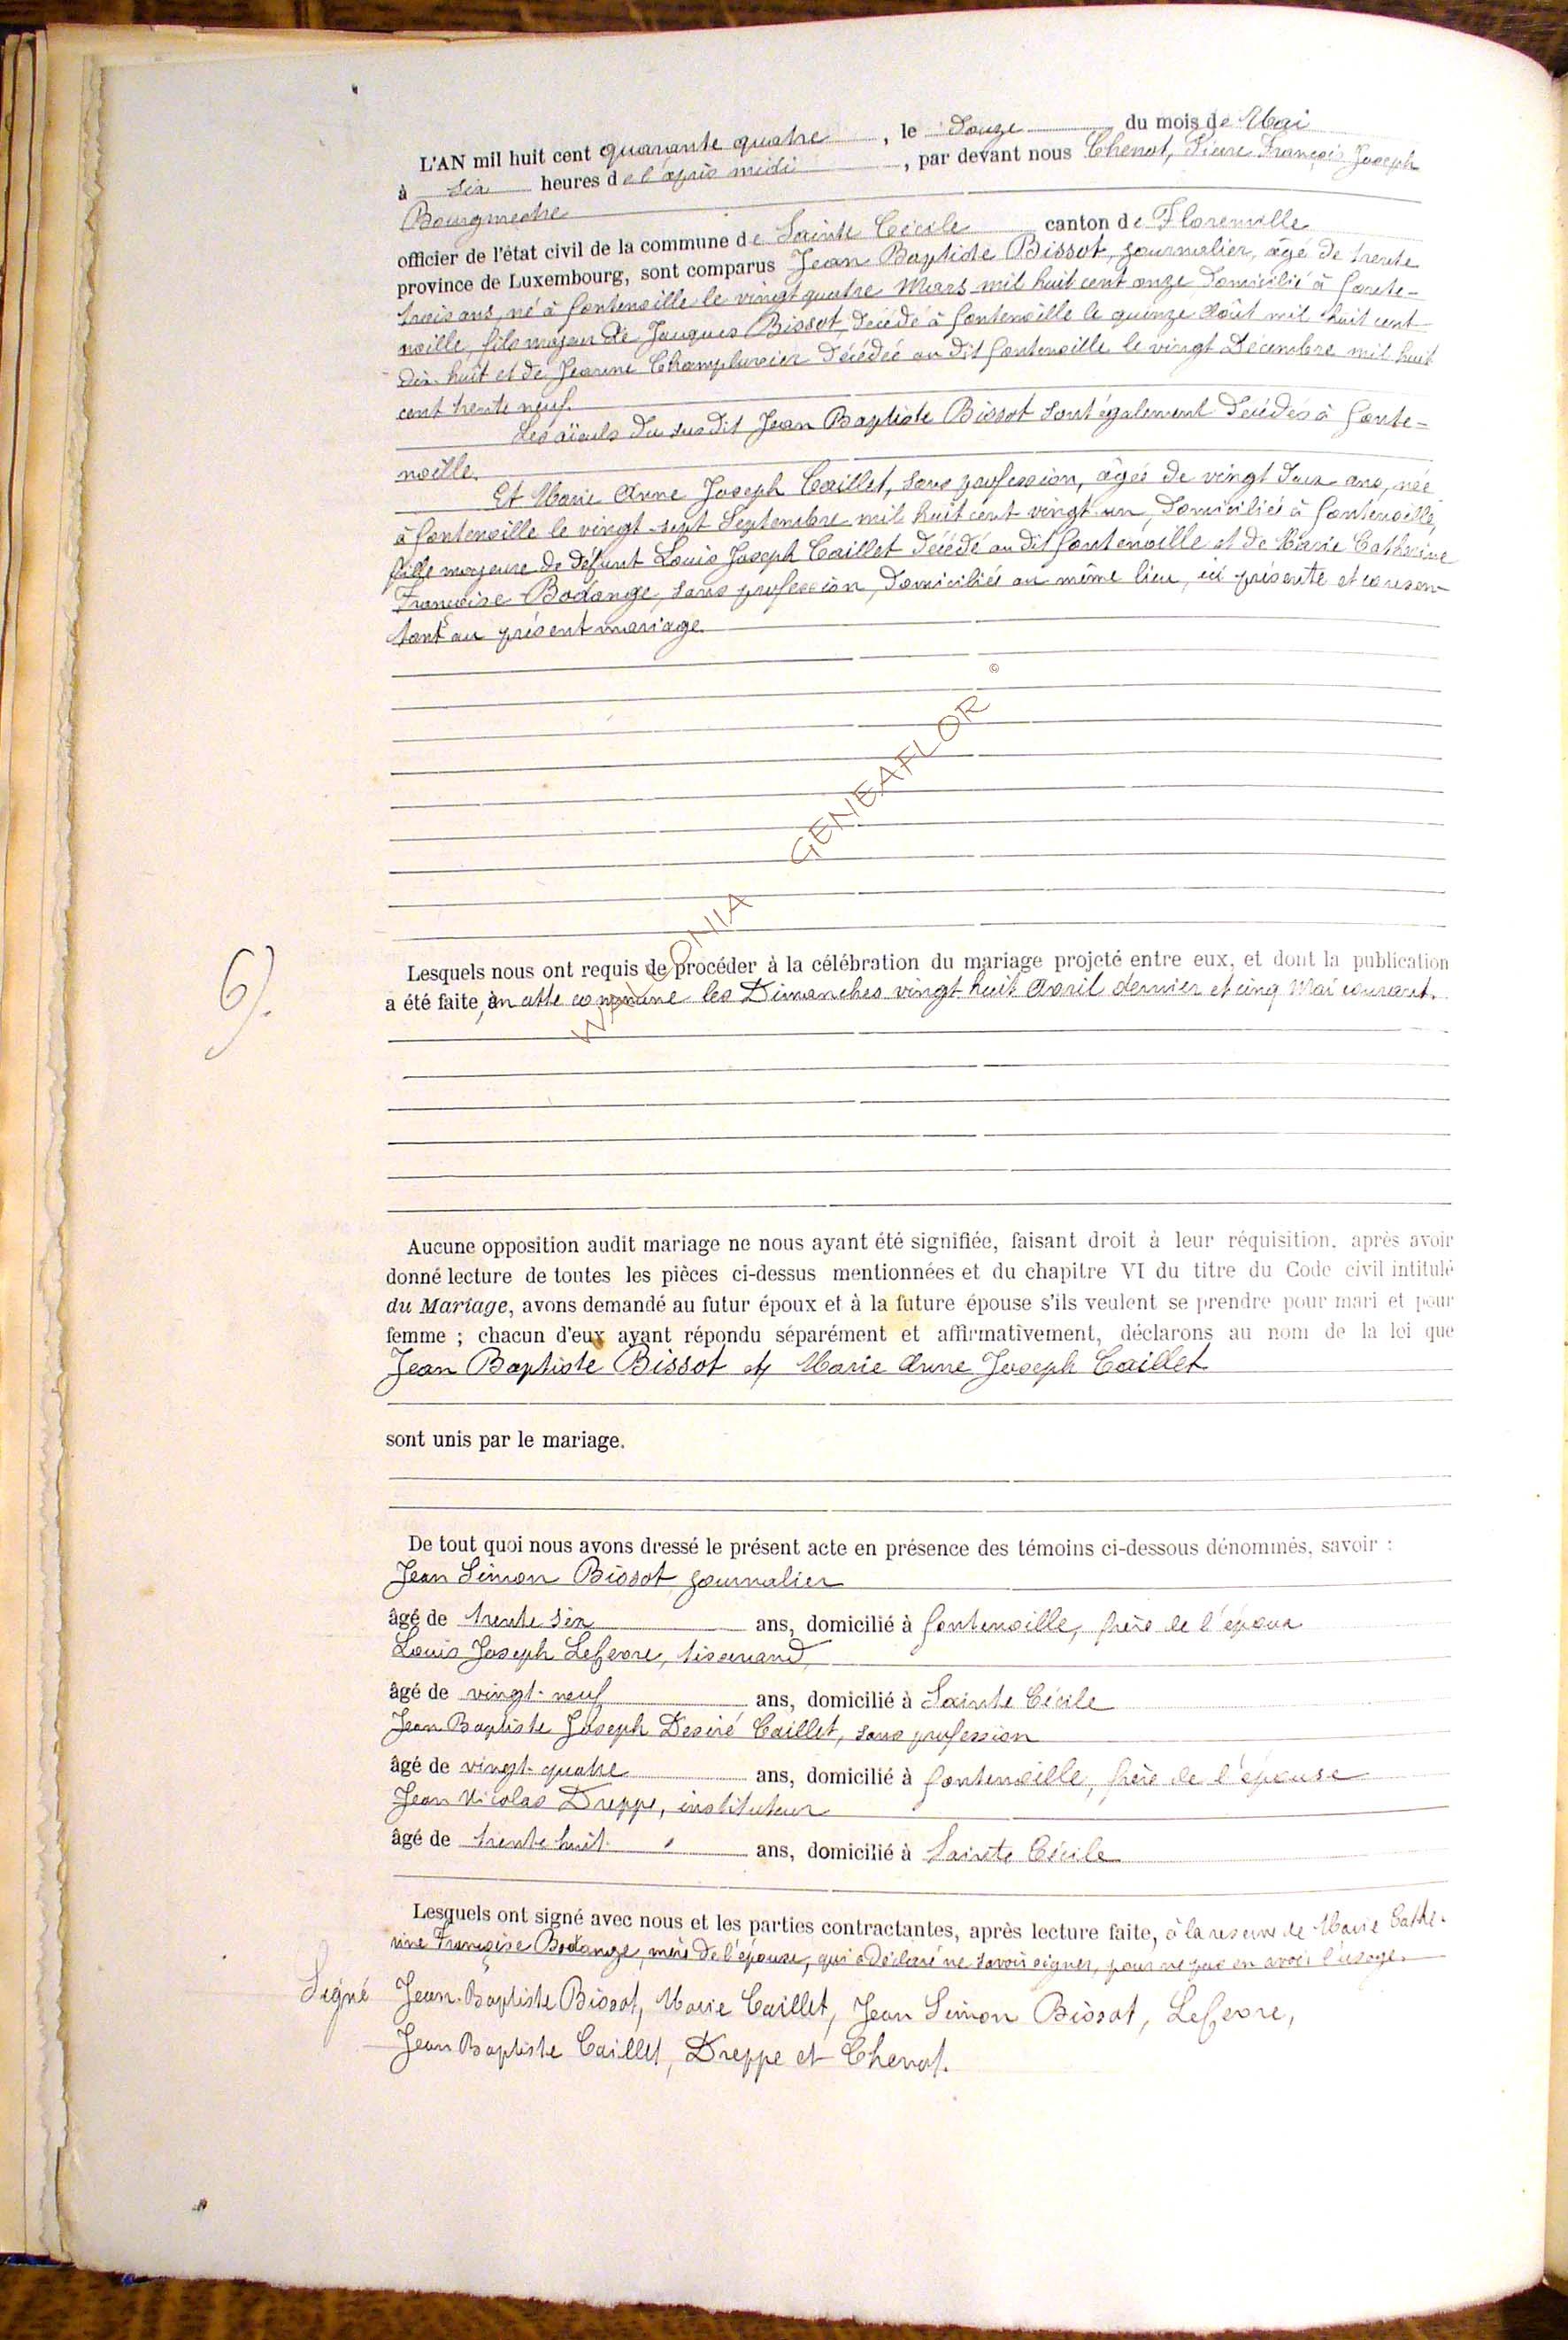 L'AN mil huit cent quarante quatre, le douze du mois de Mai
à six heures de l'après midi, par devant nous Chenot, Pierre François Joseph
Bourgmestre
officier de l'état civil de la commune de Sainte Cécile canton de Florenville
province de Luxembourg, sont comparus Jean Baptiste Bissot, journalier, âgé de trente
trois ans, né à fontenoille le vingt quatre Mars mil huit cent onze, domicilié à fonte-
noille, fils majeur de Jacques Bissot, décédé à fontenoille le quinze Août mil huit cent
dix-huit et de Jeanne Champlurier décédée au dit fontenoille le vingt Décembre mil huit
cent trente neuf.
Les aïeuls du susdit Jean Baptiste Bissot sont également décédés à fonte=
noille.
Et Marie Anne Joseph Caillet, sans profession, âgée de vingt deux ans, née
à fontenoille le vingt-sept Septembre mil huit cent vingt-un, domiciliée à fontenoille,
fille majeure de défunt Louis Joseph Caillet décédé au dit fontenoille et de Marie Catherine
Françoise Bodange, sans profession, domiciliée au même lieu, ici présente et consen-
tant au présent mariage.
WALLONIA GENEAFLOR ©
6).
Lesquels nous ont requis de procéder à la célébration du mariage projeté entre eux, et dont la publication
a été faite, en cette commune les Dimanches vingt-huit Avril dernier et cinq Mai courant.
Aucune opposition audit mariage ne nous ayant été signifiée, faisant droit à leur réquisition, après avoir
donné lecture de toutes les pièces ci-dessus mentionnées et du chapitre VI du titre du Code civil intitulé
du Mariage, avons demandé au futur époux et à la future épouse s'ils veulent se prendre pour mari et pour
femme ; chacun d'eux ayant répondu séparément et affirmativement, déclarons au nom de la loi que
Jean Baptiste Bissot et Marie Anne Joseph Caillet
sont unis par le mariage.
De tout quoi nous avons dressé le présent acte en présence des témoins ci-dessous dénommés, savoir :
Jean Simon Bissot journalier
âgé de trente six ans, domicilié à fontenoille, frère de l'époux
Louis Joseph Lefevre, tisserand,
âgé de vingt-neuf ans, domicilié à Sainte Cécile
Jean Baptiste Joseph Desiré Caillet, sans profession
âgé de vingt-quatre ans, domicilié à fontenoille, frère de l'épouse
Jean Nicolas Dreppe, instituteur
âgé de trente huit ans, domicilié à Sainte Cécile
Lesquels ont signé avec nous et les parties contractantes, après lecture faite, à la reserve de Marie Cathe-
rine Françoise Bodange, mère de l'épouse, qui a déclaré ne savoir signer, pour ne pas en avoir l'usage.
Signé Jean-Baptiste Bissot, Marie Caillet, Jean Simon Bissot, Lefevre,
Jean Baptiste Caillet, Dreppe et Chenot.